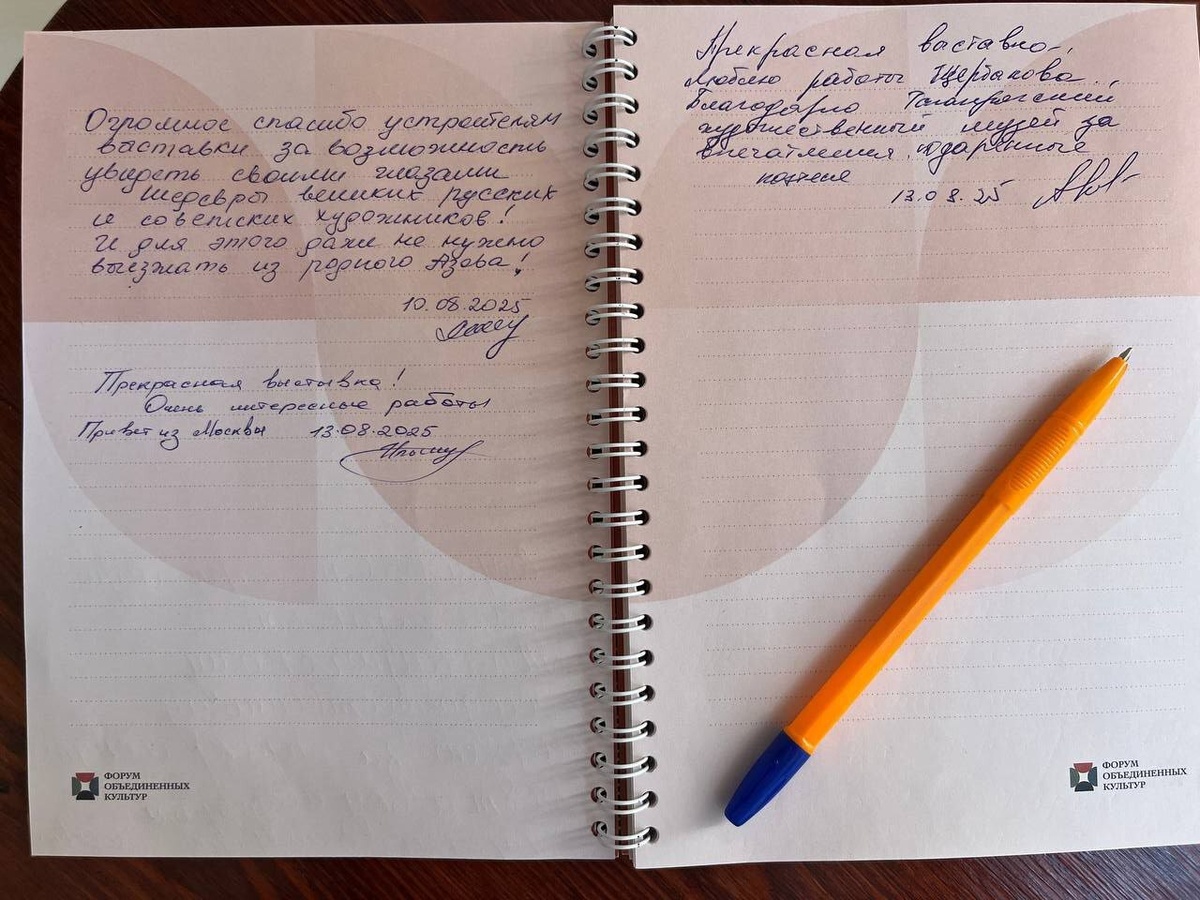 Огромное спасибо устроителям
выставки за возможность
увидеть своими глазами
шедевры великих русских
и советских художников!
И для этого даже не нужно
выезжать из родного Азова!
10.08.2025
Прекрасная выстывка!
Очень интересные работы
Привет из Москвы 13.08.2025
ФОРУМ
ОБЪЕДИНЕННЫХ
КУЛЬТУР
Прекрасная
Люблю работы Щербакова
Благодарю Таганрогский
художественный музей за
впечатления, подаренные
13.08.25
ФОРУМ
ОБЪЕДИНЕННЫХ
КУЛЬТУР